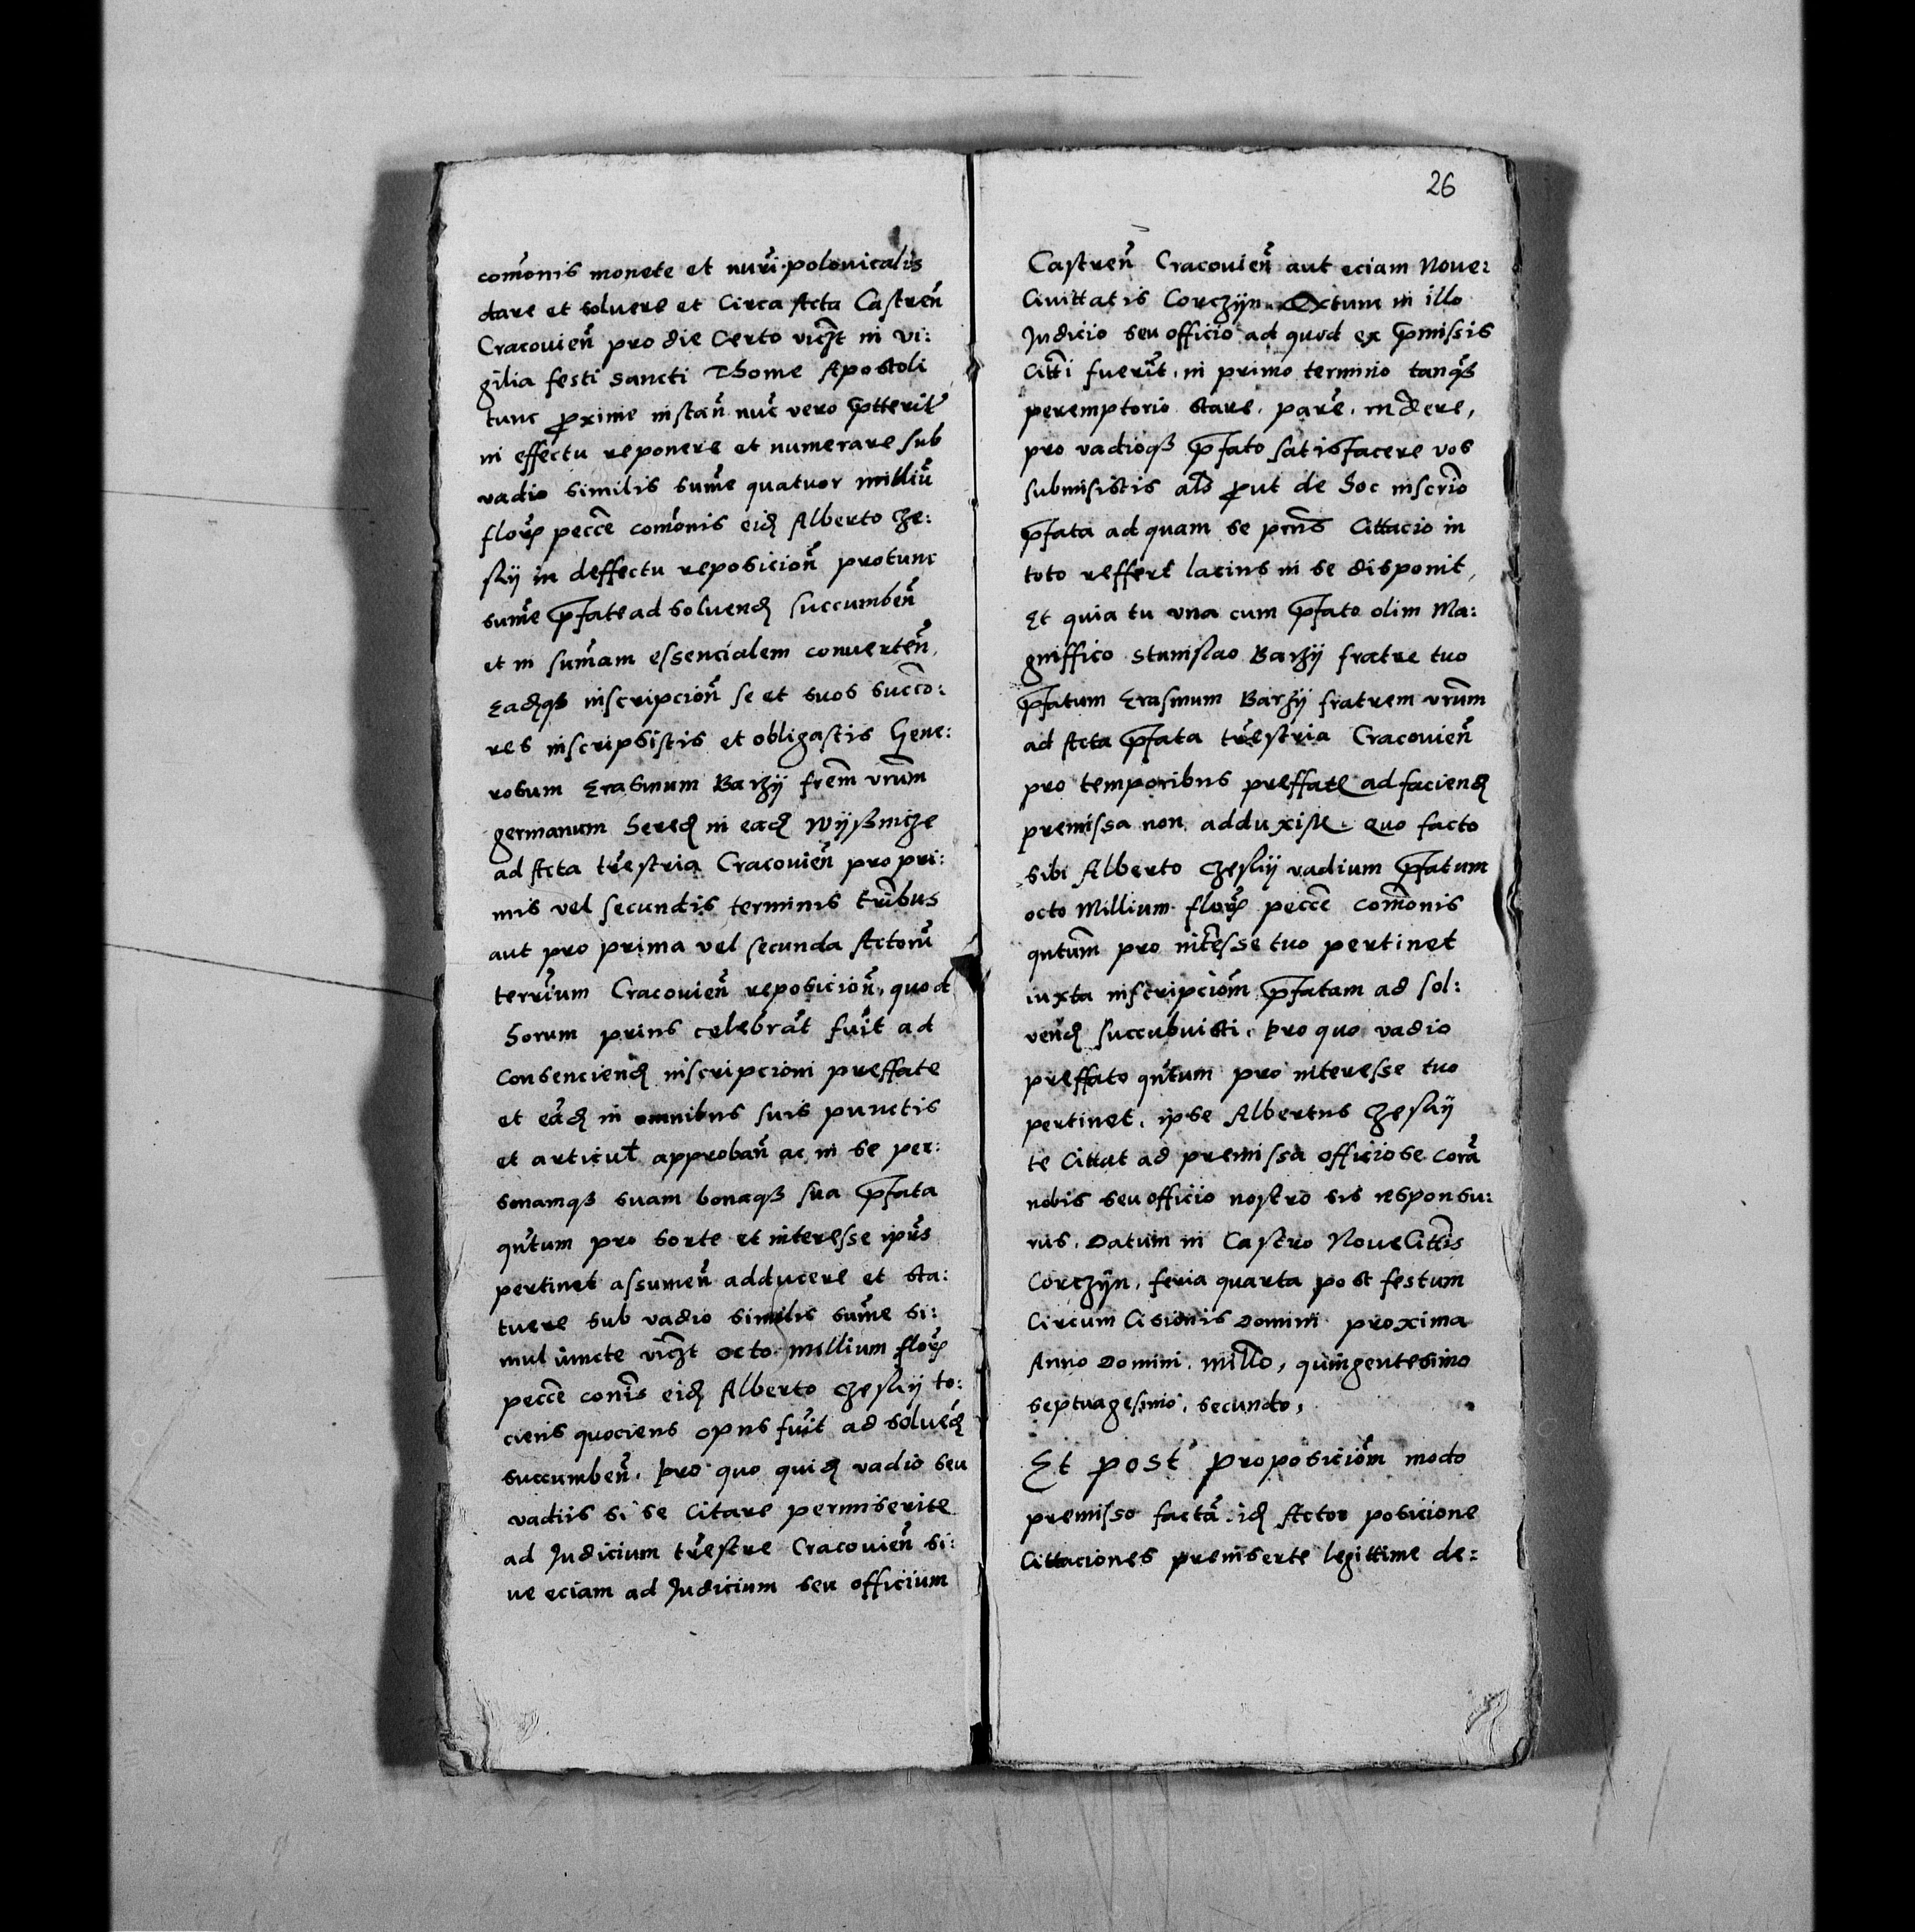 com̄onis monete et nuri polonicalis
dare et soluere et Circa Acta Castren̄
Cracouien̄ pro die Certo vicꝫt in vi:
gilia festi sancti Thome Apostoli
tunc ꝓxime instan̄ nūc vero p̄tterit
in effectu reponere et numerare sub
vadio similis sum̄e quatuor milliū
floꝝ pecc̄e com̄onis eidꝫ Alberto Cze:
skÿ in deffectu reposicion̄ protunc
sum̄e p̄fate ad soluendꝫ succumben̄
et in sum̄am essencialem conuerten̄,
Eadꝫqꝫ inscripcion̄ se et suos succō:
res inscripsistis et obligastis Gene:
rosum Erasmum Barzÿ frēm vrūm
germanum heredꝫ in eadꝫ Wÿßnicze
ad Acta tr̄estria Cracouien̄ pro pri:
mis vel secundis terminis tribus
aut pro prima vel secunda Actorū
terrīum Cracouien̄ reposicion̄, quod
horum prius celebrāt fūit ad
Consenciendꝫ inscripcioni preffate
et eādꝫ in omnibus suis punctis
et articuł approban̄ ac in se per:
sonamqꝫ suam bonaqꝫ sua p̄fata
qn̄tum pro sorte et interesse ip̄us
pertinet assumen̄ adducere et sta:
tuere sub vadio similis sum̄e si:
mul iuncte vicꝫt octo millium floꝝ
pecc̄e con̄is eidꝫ Alberto Czeskÿ to:
ciens quociens opus fūit ad soluēdꝫ
succumben̄. Pro quo quidꝫ vadio seu
vadiis si se Citare permiserite
ad Judicium tr̄estre Cracouien̄ si:
ue eciam ad Judicium seu officium
26
Castren̄ Cracouien̄ aut eciam Noue:
Ciuittatis Corczÿn. Extum in illo
Judicio seu officio ad quod ex p̄missis
Citt̄i fuerīt, in primo termino tanqꝫ
peremptorio stare, parē, rn̄dere,
pro vadioqꝫ p̄fato satisfacere vos
submisistis als̄ ꝓut de hoc inscrīo
p̄fata ad quam se pn̄s Cittacio in
toto reffert lacius in se disponit,
Et quia tu vna cum p̄fato olim Ma:
gniffico Stanislao Barzÿ fratre tuo
p̄fatum Erasmum Barzÿ fratrem vrūm
ad Acta p̄fata tr̄estria Cracouien̄
pro temporibus preffate ad faciendꝫ
premissa non adduxisti. Quo facto
sibi Alberto Czeskÿ vadium p̄fatum
octo Millium floꝝ pecc̄e com̄onis
qntūm pro int̄esse tuo pertinet
iuxta inscripciōm p̄fatam ad sol:
vendꝫ succubuisti. Pro quo vadio
preffato qn̄tum pro interesse tuo
pertinet. ipse Albertus Czeskÿ
te Cittat ad premissa officiose corā
nobis seu officio nostro sis responsu:
rus. Datum in Castro Noue Citt̄is
Corczÿn, feria quarta post festum
Circum Cisionis Domini proxima
Anno Domini mill̄o, quingentesimo
septuagesimo, secundo,
Et post proposiciōm modo
premisso factā. idꝫ Actor posicione
Cittaciones preinserte legittime de: